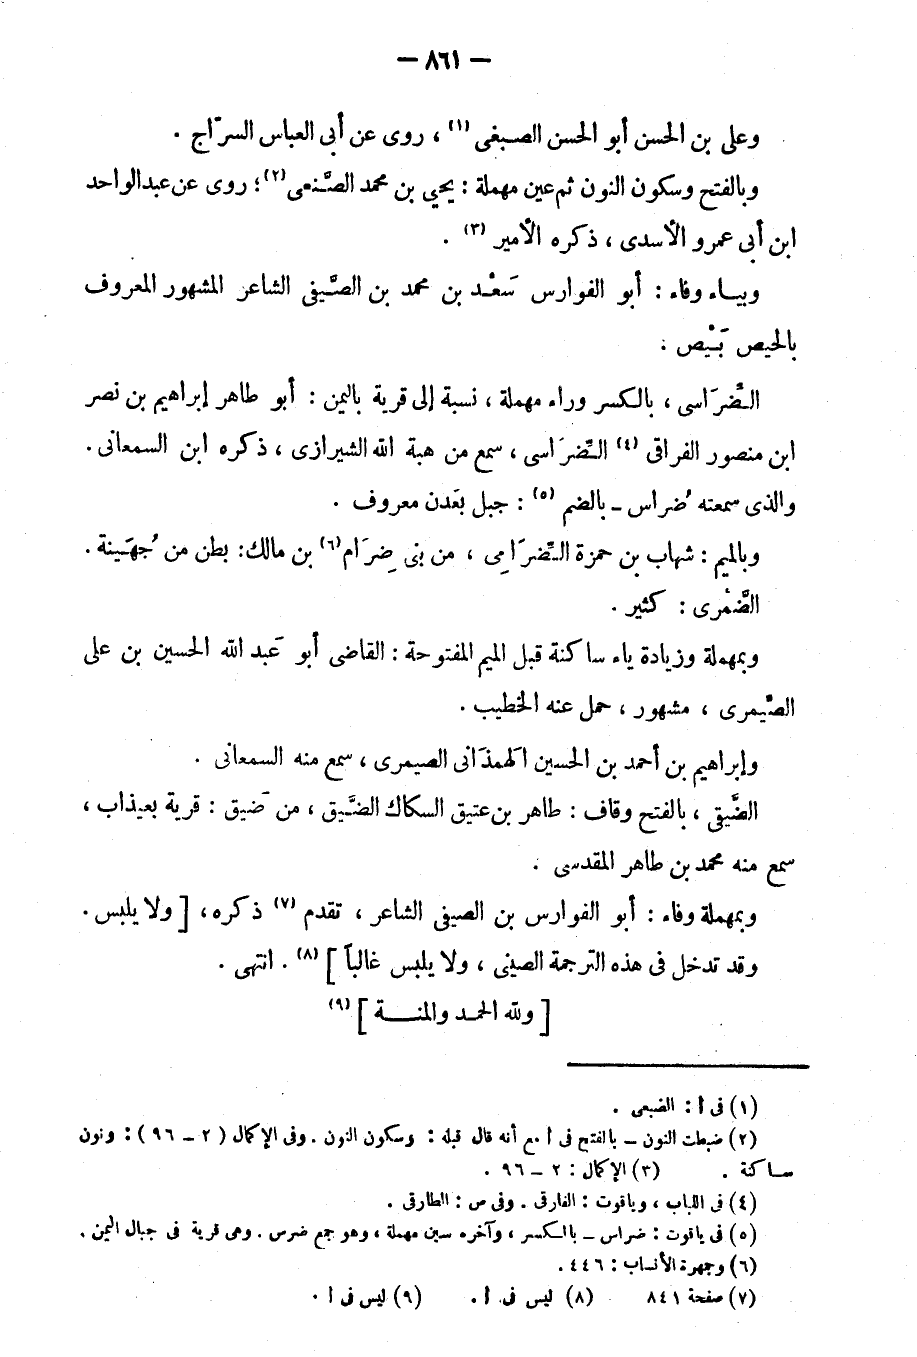 — ٨٦١ —
وعلى بن الحسن أبو الحسن الصبغى (١) ، روى عن أبى العباس السرّاج .
وبالفتح وسكون النون ثم عين مهملة : يحيى بن محمد الصَّنعى (٢) ؛ روى عن عبدالواحد
ابن أبى عمرو الأسدى ، ذكره الأمير (٣) .
وبيـاء وفاء : أبو الفوارس سَعْـد بن محمد بن الصَّيفى الشاعر المشهور المعروف
بالحيص بَيْص .
الضِّرَاسى ، بالكسر وراء مهملة ، نسبة إلى قرية باليمن : أبو طاهر إبراهيم بن نصر
ابن منصور الفراقى (٤) الضِّرَاسى ، سمع من هبة الله الشيرازى ، ذكره ابن السمعانى .
والذى سمعته ضُراس – بالضم (٥) : جبل بعَدن معروف .
وبالميم : شهاب بن حمزة الضِّرَامِى ، من بنى ضِرَام (٦) بن مالك : بطن من جُهَينة .
الضَّمْرى : كثير .
وبمهملة وزيادة ياء ساكنة قبل الميم المفتوحة : القاضى أبو عَبد الله الحسين بن على
الصَّيمرى ، مشهور ، حمل عنه الخطيب .
وإبراهيم بن أحمد بن الحسين الهمذَانى الصيمرى ، سمع منه السمعانى .
الضَّيقى ، بالفتح وقاف : طاهر بن عتيق السكاك الضَّيق ، من ضَيق : قرية بعيذاب ،
سمع منه محمد بن طاهر المقدسى .
وبمهملة وفاء : أبو الفوارس بن الصيفى الشاعر ، تقدم (٧) ذكره ، [ ولا يلبس .
وقد تدخل فى هذه الترجمة الصينى ، ولا يلبس غالباً ] (٨) . انتهى .
[ ولله الحمـد والمنــــة ] (٩)
(١) فى ا : الضبعى .
(٢) ضبطت النون – بالفتح فى ا مع أنه قال قبله : وسكون النون . وفى الإكمال ( ٢ – ٩٦ ) : ونون
ساكنة . (٣) الإكمال : ٢ – ٩٦ .
(٤) فى اللباب ، وياقوت : الفارقى . وفى ص : الطارقى .
(٥) فى ياقوت : ضراس – بالكسر ، وآخره سين مهملة ، وهو جمع ضرس . وهى قرية فى جبال اليمن .
(٦) وجمهرة الأنساب : ٤٤٦ .
(٧) صفحة ٨٤١ (٨) ليس فى ا . (٩) ليس فى ا .